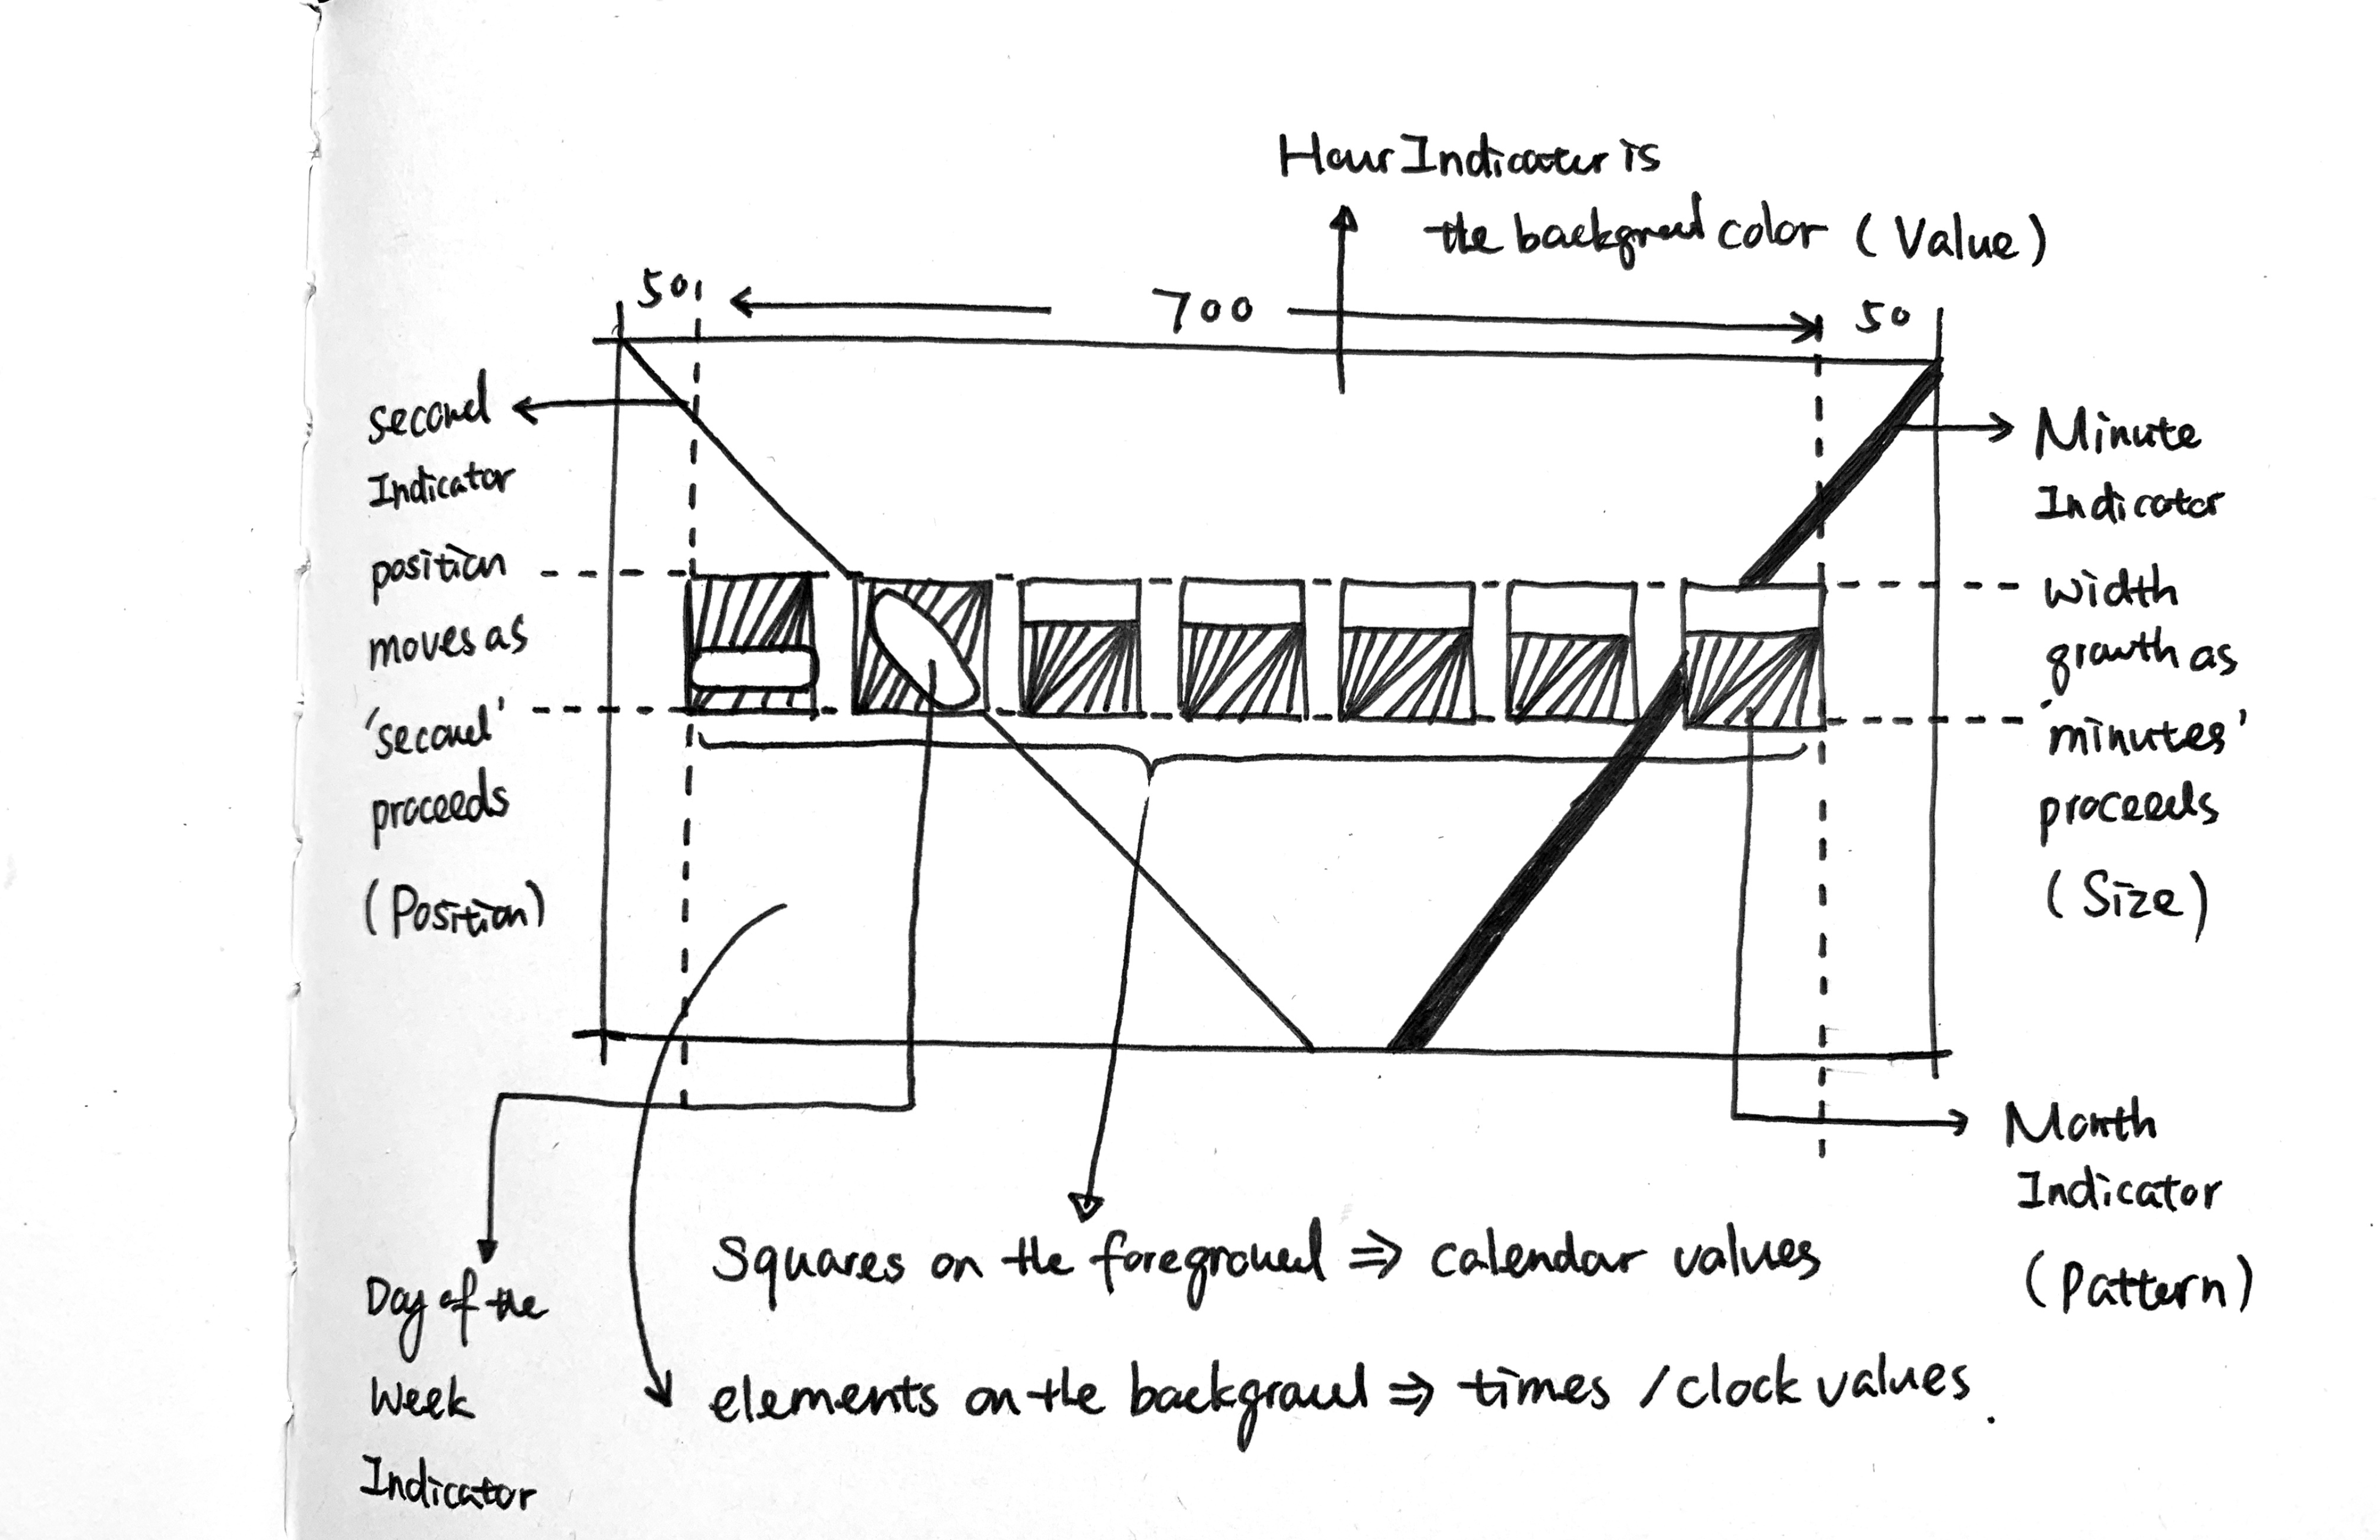 Hour Indicator is
the background color ( Value )
50
700
50
second
Indicator
position
moves as
'second'
proceeds
(Position)
Minute
Indicator
width
growth as
'minutes'
proceeds
( Size )
Month
Indicator
( Pattern )
Day of the
Week
Indicator
Squares on the foreground ⇒ calendar values
elements on the background ⇒ times / clock values.